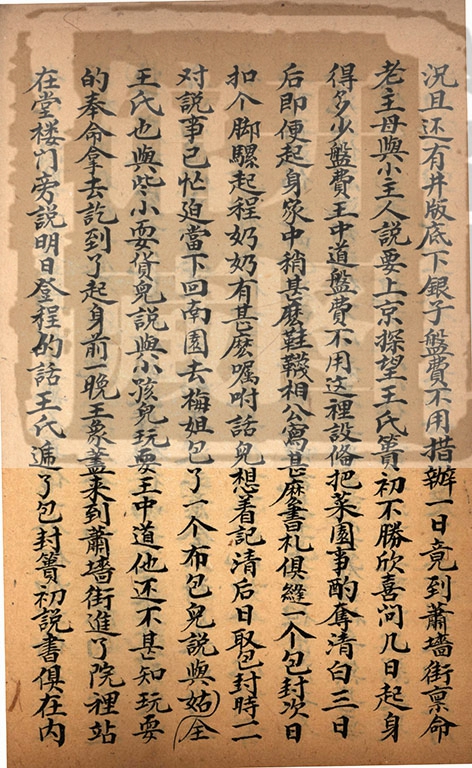 况且还有井版底下银子盤費不用措辦一日竟到蕭墻街禀命
老主母與小主人説要上京探望王氏簣初不勝欣喜问几日起身
得多少盤費王中道盤費不用这裡設俻把菜園事酌奪清白三日
后即便起身家中稍甚庅鞋韈相公寫甚庅書札俱縫一个包封次日
扣个脚騾起程奶奶有甚庅嘱咐話兒想着記清后日取包封時二
对説事已忙迫當下回南園去梅姐包了一个布包兒説與姑全
王氏也與些小耍貨兒説與小孩兒玩耍王中道他还不甚知玩耍
的奉命拿去訖到了起身前一晚王象藎来到蕭墻街進了院裡站
在堂楼门旁説明日登程的話王氏遞了包封簣初説書俱在内